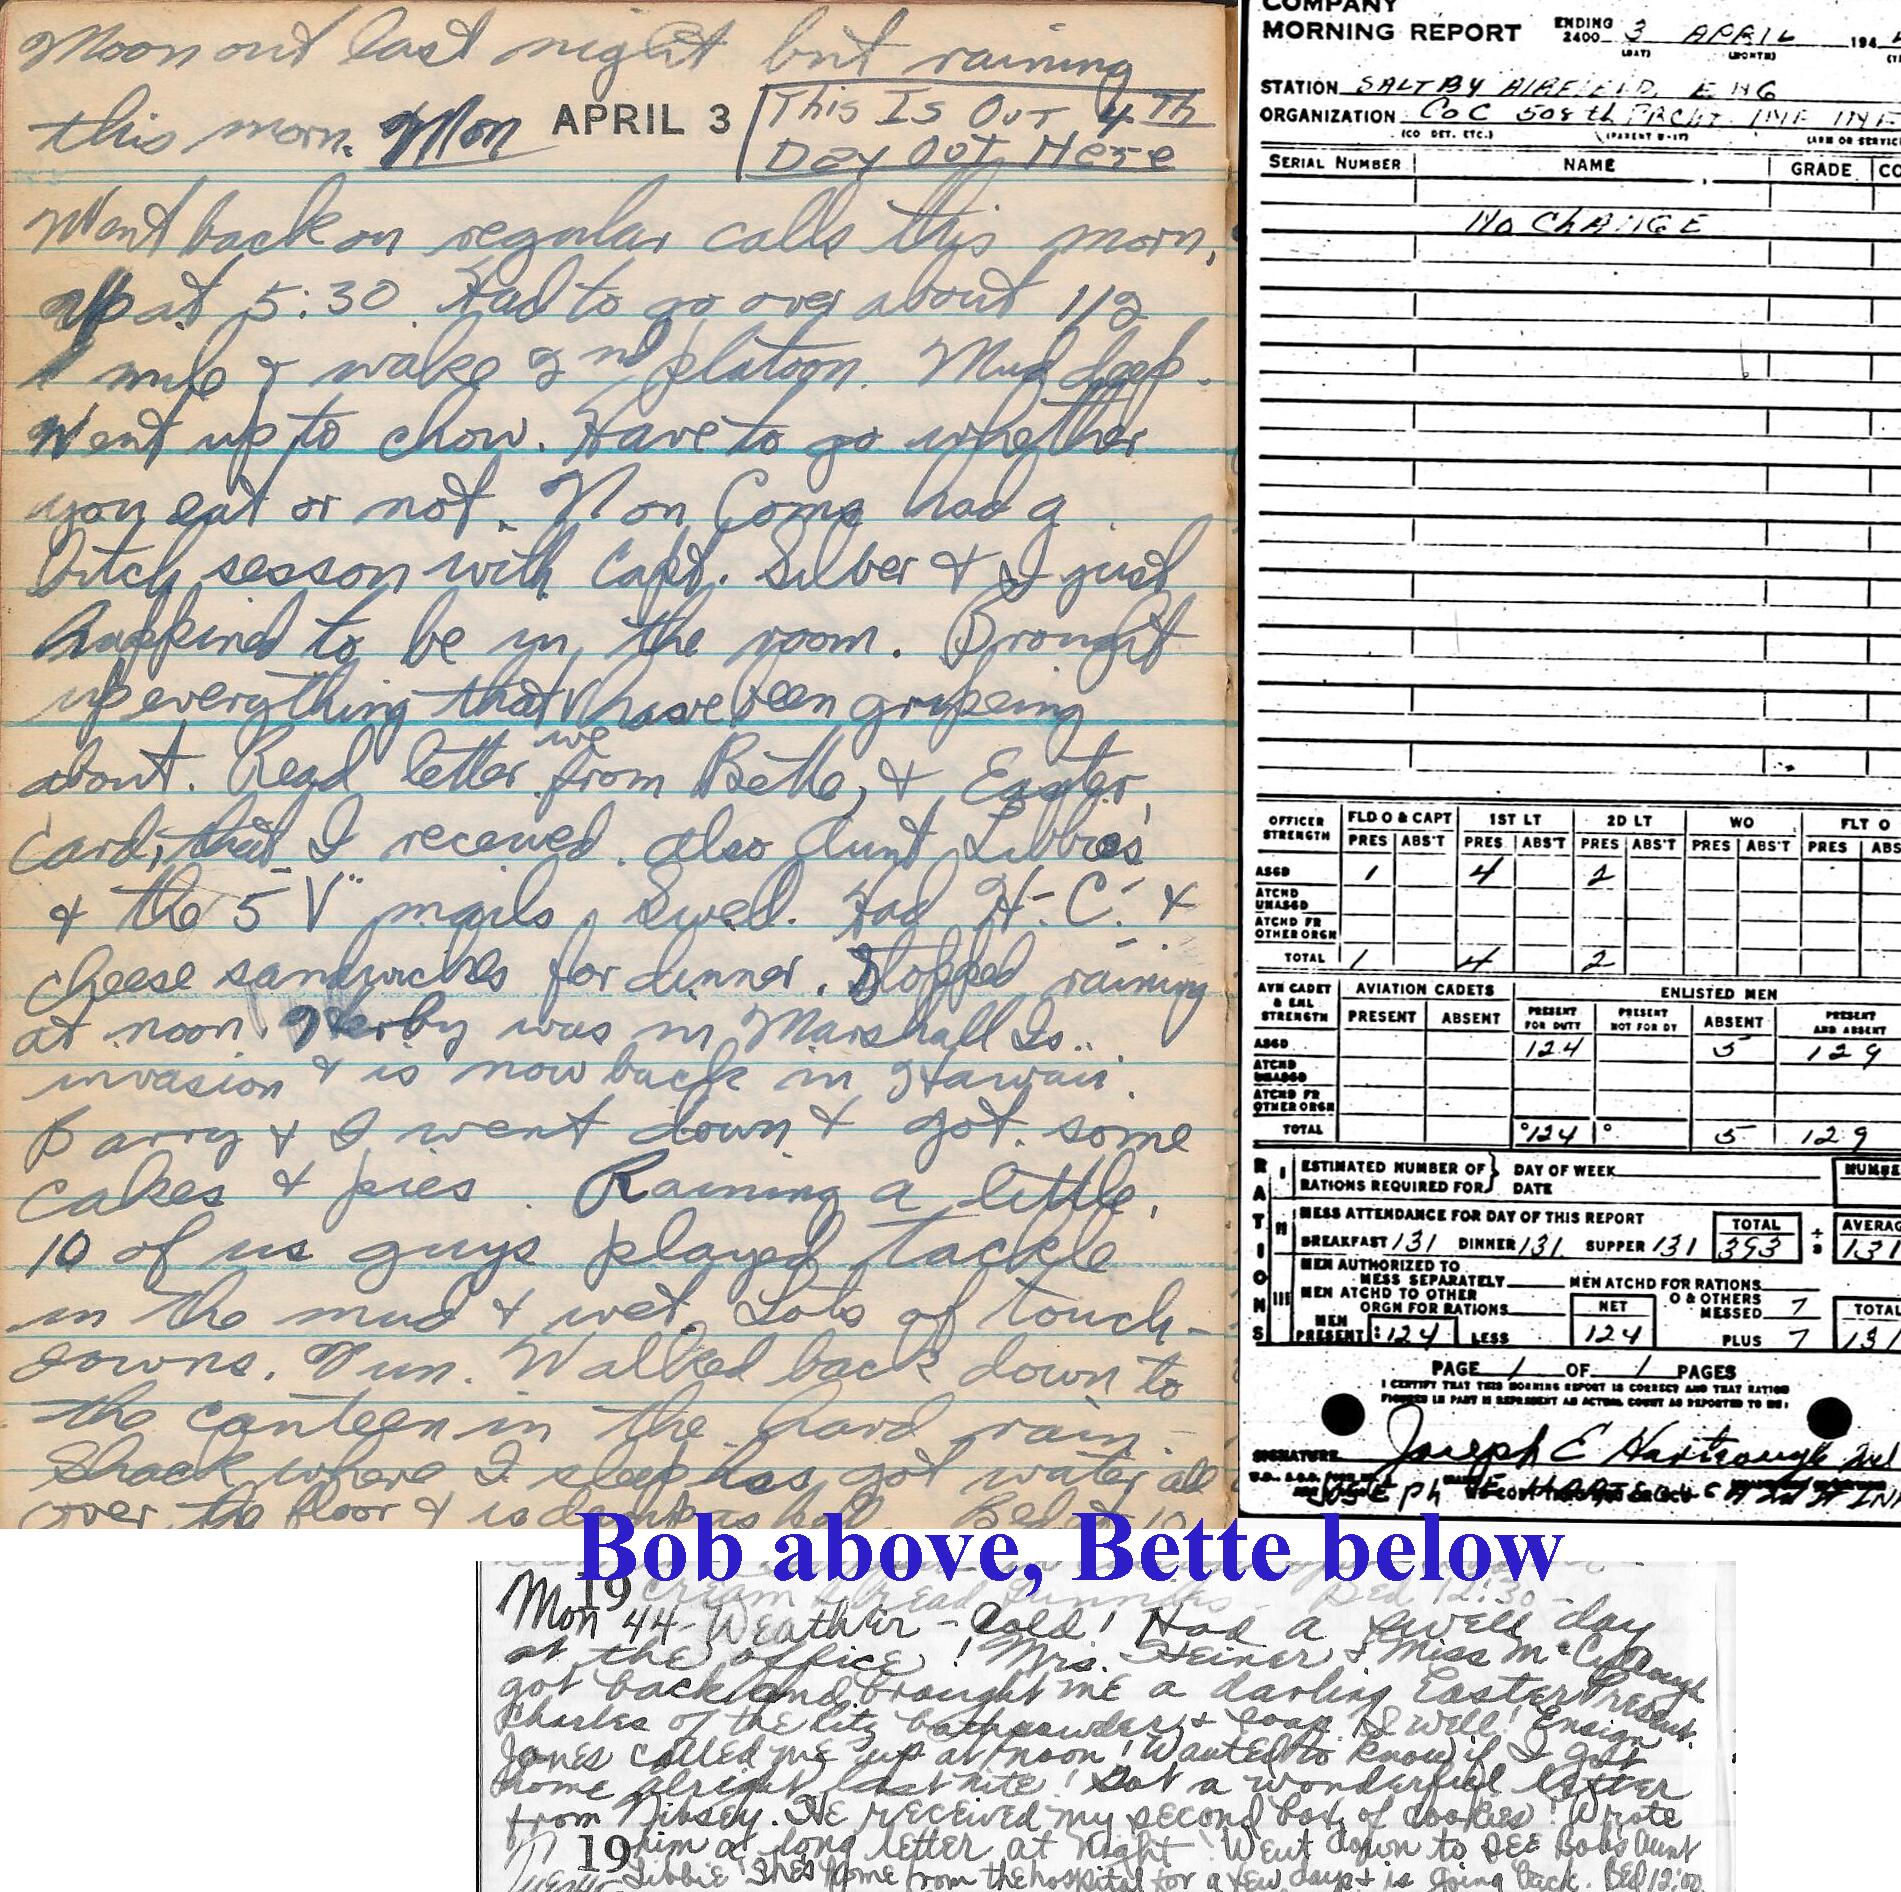 Moon out last night but raining
this morn. Mon APRIL 3
This Is Our 4th
Day Out Here
Went back on regular calls this morn.
Up at 5:30. Had to go over about 1/2
mile & wake 2nd platoon. Mud deep.
Went up to chow. Have to go whether
you eat or not. Non Coms had a
bitch sesson with Capt. Silber & I just
happined to be in the room. Brought
up everything that we have been gripeing
about. Read letter from Bette, & Easter
card, that I received. also Aunt Libbie's
& the 5 "V" mails. Swell. Had H. C. &
cheese sandwiches for dinner. Stopped raining
at noon. Herby was in Marshall Is..
invasion & is now back in Hawaii.
Barry & I went down & got some
cakes & pies. Raining a little.
10 of us guys played tackle
in the mud & wet. Lots of touch-
downs. Fun. Walked back down to
the canteen in the hard rain.
Shack where I sleep has got water all
over the floor & is damp as hell. Bed at 10
COMPANY
MORNING REPORT ENDING 2400 3 APRIL 194
(DAY) (MONTH)
STATION SALTBY AIRFIELD, ENG
ORGANIZATION Co C 508th PRCHT INF INF
(CO DET. ETC.) (PARENT UNIT) (ARM OR SERVIC
SERIAL NUMBER NAME GRADE CO
No CHANGE
OFFICER STRENGTH FLD O & CAPT 1ST LT 2D LT WO FLT O
PRES ABS'T PRES ABS'T PRES ABS'T PRES ABS'T PRES ABS
ASGD 1 4 2
ATCHD UNASGD
ATCHD FR OTHER ORGN
TOTAL 1 4 2
AVN CADET & ENL STRENGTH AVIATION CADETS ENLISTED MEN
PRESENT ABSENT PRESENT FOR DUTY PRESENT NOT FOR DY ABSENT PRESENT AND ABSENT
ASGD 124 5 129
ATCHD UNASGD
ATCHD FR OTHER ORGN
TOTAL 124 5 129
RATIONS
I ESTIMATED NUMBER OF RATIONS REQUIRED FOR DAY OF WEEK DATE NUMBE
II MESS ATTENDANCE FOR DAY OF THIS REPORT TOTAL ÷ 3 AVERAG
BREAKFAST 131 DINNER 131 SUPPER 131 393 131
III MEN AUTHORIZED TO MESS SEPARATELY MEN ATCHD FOR RATIONS
MEN ATCHD TO OTHER ORGN FOR RATIONS NET O & OTHERS MESSED 7 TOTAL
MEN PRESENT: 124 LESS 124 PLUS 7 131
PAGE 1 OF 1 PAGES
I CERTIFY THAT THIS MORNING REPORT IS CORRECT AND THAT RATION
FIGURES IN PART II REPRESENT AN ACTUAL COUNT AS REPORTED TO ME:
SIGNATURE Joseph E Hartsough
JOSEPH E HARTSOUGH 2nd Lt INF
Bob above, Bette below
cream & bread Bed 12:30
19
Mon 44 - Weather - Cold! Had a swell day
at the office! Mrs. Heiner & Miss McCullough
got back and brought me a darling Easter Present
Charles of the Ritz bathpowder & soap. Swell! Ensign
Jones called me up at noon! Wanted to know if I got
home alright last nite! Got a wonderful letter
from Nibsey. He received my second box of cookies! Wrote
19 him a long letter at night. Went down to see Bobs Aunt
Libbie. She's home from the hospital for a few days & is going back. Bed 12:00